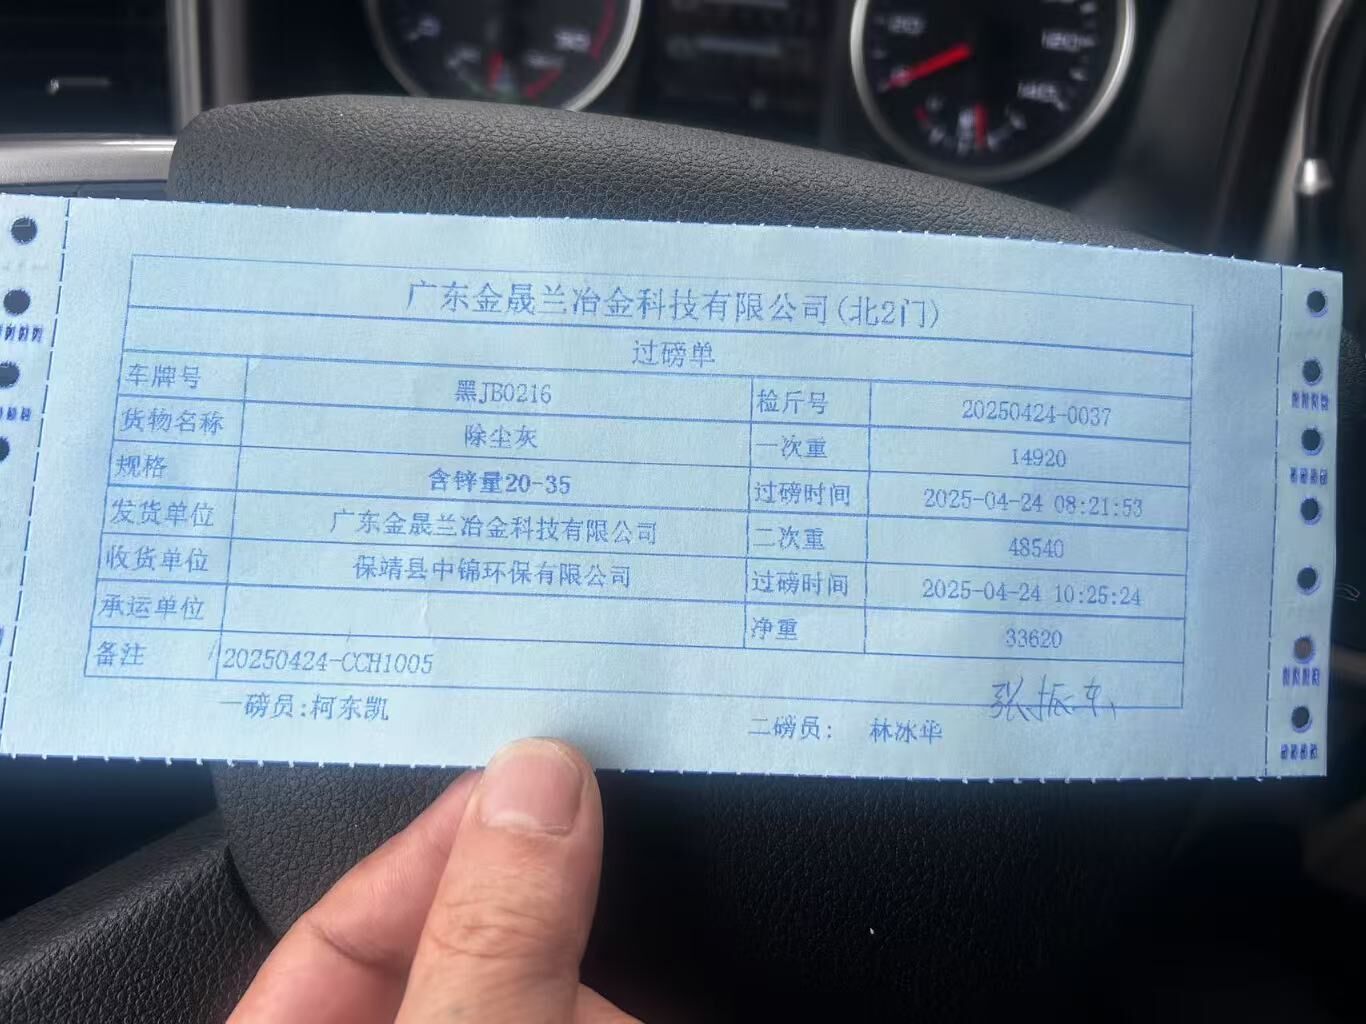 广东金晟兰冶金科技有限公司(北2门)
过磅单
车牌号 黑JB0216 检斤号 20250424-0037
货物名称 除尘灰 一次重 14920
规格 含锌量20-35 过磅时间 2025-04-24 08:21:53
发货单位 广东金晟兰冶金科技有限公司 二次重 48540
收货单位 保靖县中锦环保有限公司 过磅时间 2025-04-24 10:25:24
承运单位 净重 33620
备注 20250424-CCH1005
一磅员:柯东凯 二磅员: 林冰华 张振东